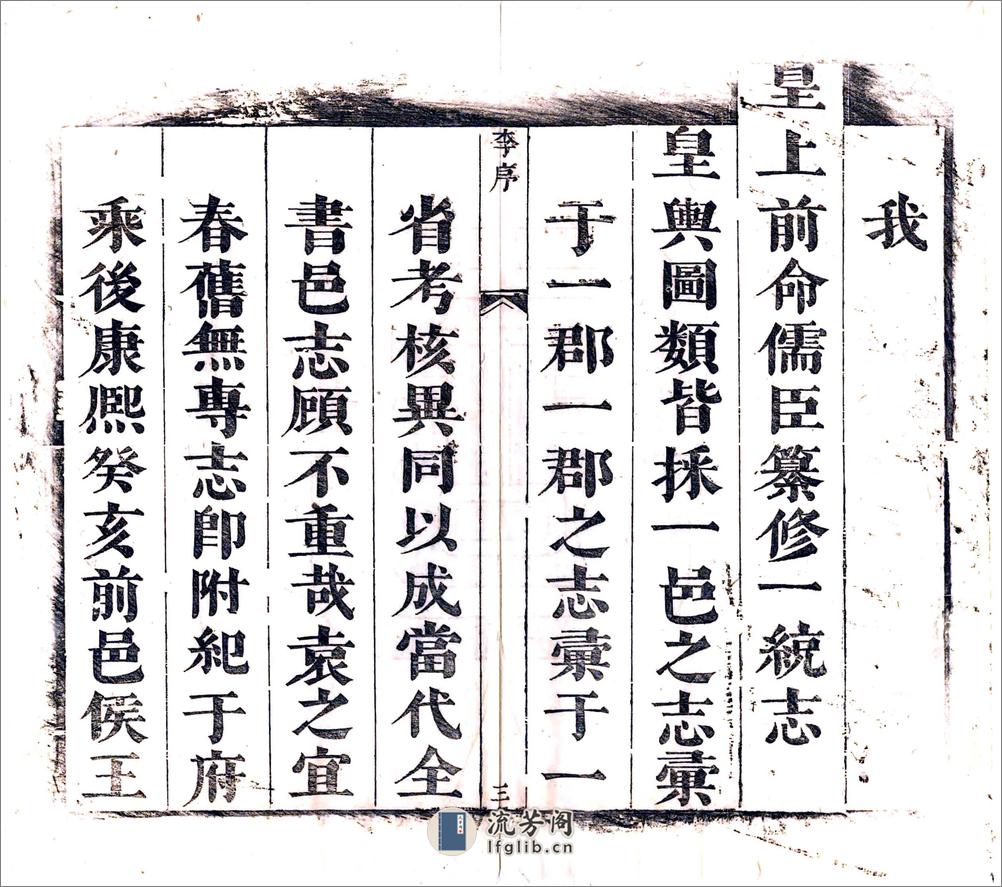 我
皇上前命儒臣纂修一統志
皇輿圖類皆採一邑之志彙
于一郡一郡之志彙于一
李序
三
省考核異同以成當代全
書邑志顧不重哉袁之宜
春舊無專志卽附紀于府
乘後康熈癸亥前邑侯王
流芳阁
lfglib.cn